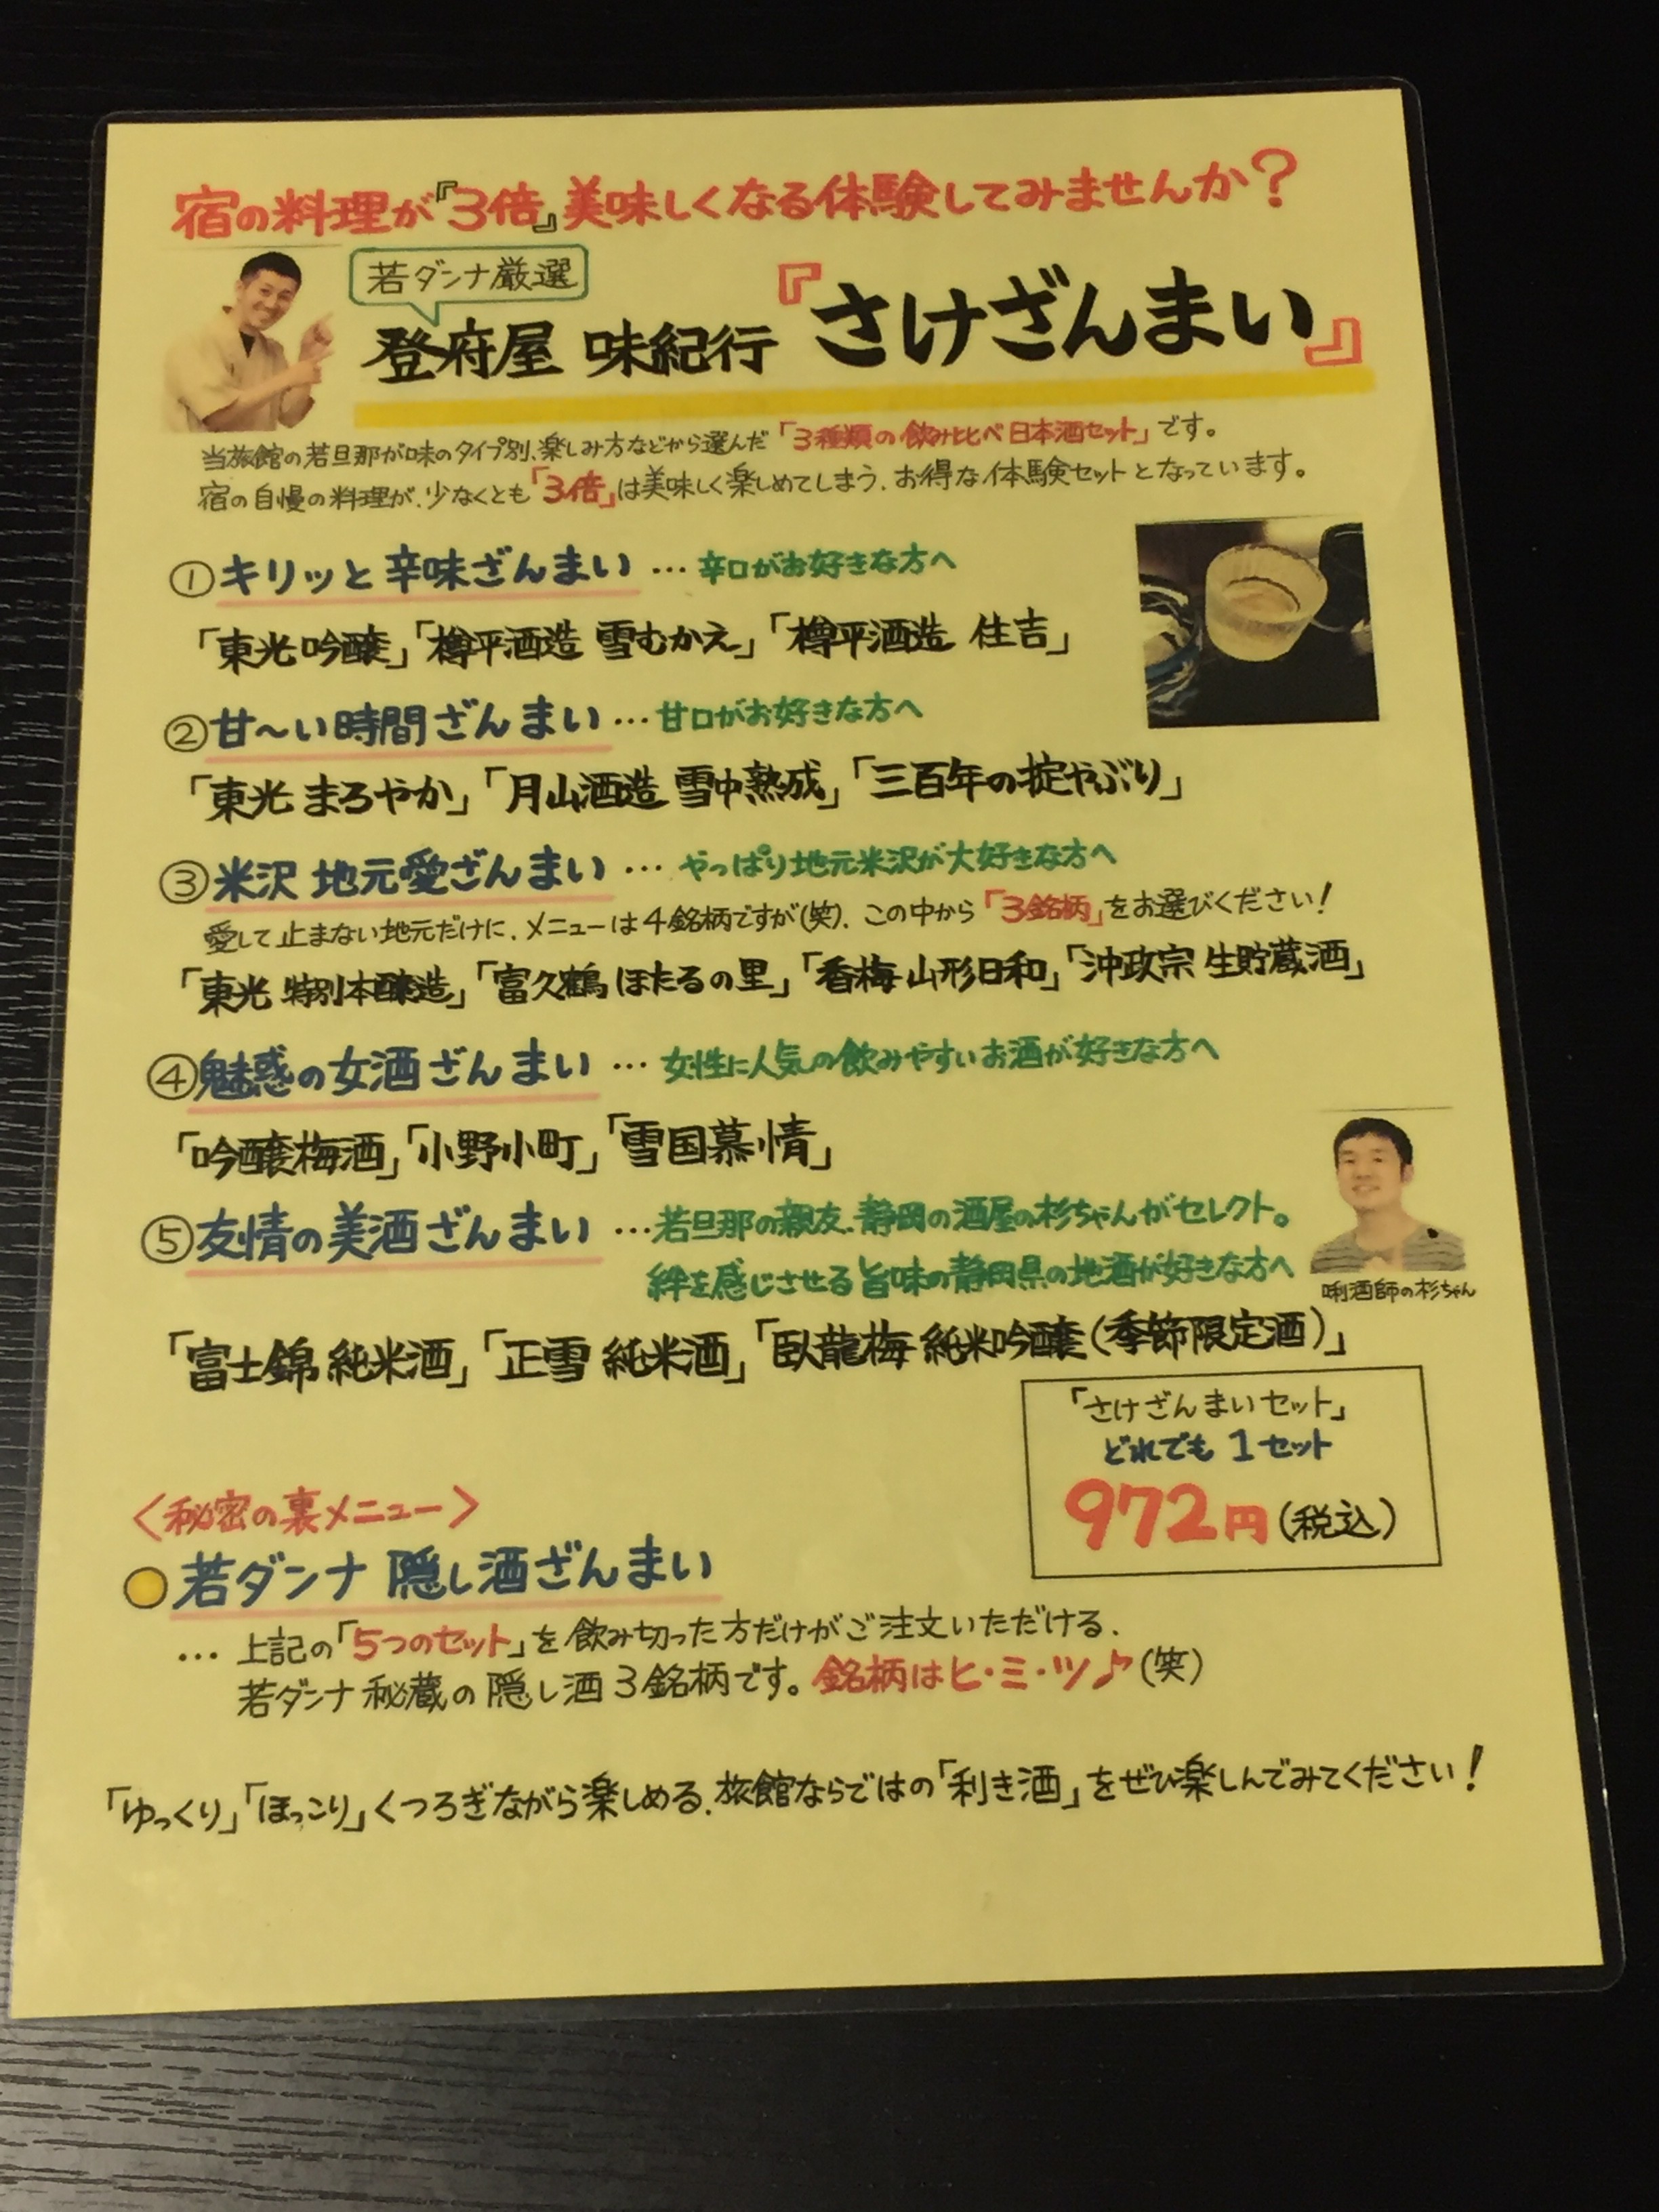 宿の料理が『3倍』美味しくなる体験してみませんか?
若ダンナ厳選
登府屋 味紀行『さけざんまい』
当旅館の若旦那が味のタイプ別、楽しみ方などから選んだ「3種類の飲み比べ日本酒セット」です。
宿の自慢の料理が、少なくとも「3倍」は美味しく楽しめてしまう、お得な体験セットとなっています。
①キリッと辛味ざんまい … 辛口がお好きな方へ
「東光 吟醸」「樽平酒造 雪むかえ」「樽平酒造 住吉」
②甘〜い時間ざんまい … 甘口がお好きな方へ
「東光 まろやか」「月山酒造 雪中熟成」「三百年の掟やぶり」
③米沢 地元愛ざんまい … やっぱり地元米沢が大好きな方へ
愛して止まない地元だけに、メニューは4銘柄ですが(笑)、この中から「3銘柄」をお選びください!
「東光 特別本醸造」「富久鶴 ほたるの里」「香梅 山形日和」「沖政宗 生貯蔵酒」
④魅惑の女酒ざんまい … 女性に人気の飲みやすいお酒が好きな方へ
「吟醸梅酒」「小野小町」「雪国慕情」
⑤友情の美酒ざんまい … 若旦那の親友、静岡の酒屋の杉ちゃんがセレクト。
絆を感じさせる旨味の静岡県の地酒が好きな方へ
唎酒師の杉ちゃん
「富士錦 純米酒」「正雪 純米酒」「臥龍梅 純米吟醸(季節限定酒)」
「さけざんまいセット」
どれでも 1セット
972円(税込)
<秘密の裏メニュー>
若ダンナ 隠し酒ざんまい
… 上記の「5つのセット」を飲み切った方だけがご注文いただける、
若ダンナ秘蔵の隠し酒3銘柄です。銘柄はヒ・ミ・ツ♪(笑)
「ゆっくり」「ほっこり」くつろぎながら楽しめる、旅館ならではの「利き酒」をぜひ楽しんでみてください!